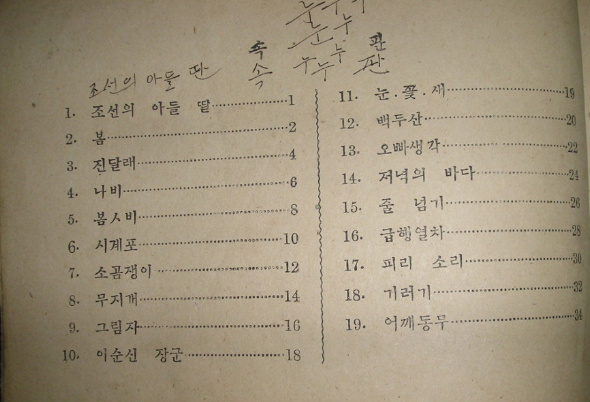 눈누누
눈누
속 누 판
속 누누 판
조선의 아들 딴
1. 조선의 아들 딸 1
2. 봄 2
3. 진달래 4
4. 나비 6
5. 봄ㅅ비 8
6. 시계포 10
7. 소곰쟁이 12
8. 무지개 14
9. 그림자 16
10. 이순신 장군 18
11. 눈.꽃.새 19
12. 백두산 20
13. 오빠생각 22
14. 저녁의 바다 24
15. 줄 넘기 26
16. 급행열차 28
17. 피리 소리 30
18. 기러기 32
19. 어깨동무 34